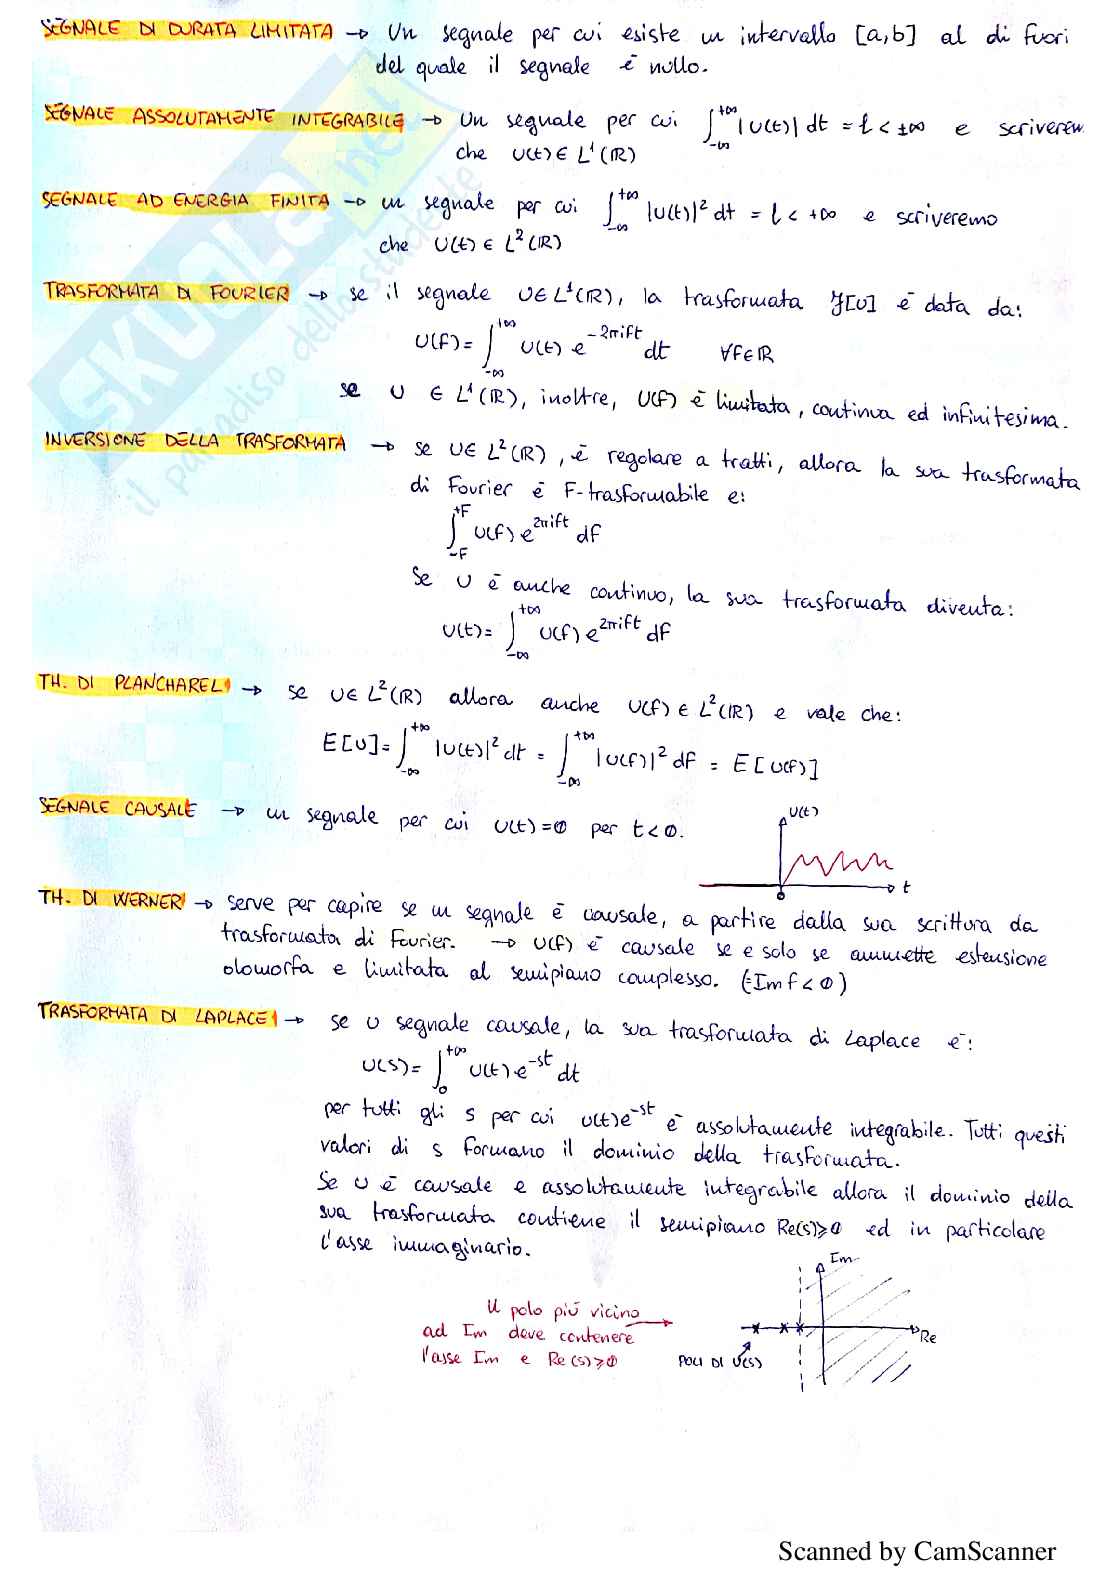 SEGNALE DI DURATA LIMITATA → Un segnale per cui esiste un intervallo [a,b] al di fuori
del quale il segnale è nullo.
SEGNALE ASSOLUTAMENTE INTEGRABILE → Un segnale per cui ∫_{-∞}^{+∞} |U(t)| dt = l < ±∞ e scriverem
che U(t) ∈ L¹(ℝ)
SEGNALE AD ENERGIA FINITA → un segnale per cui ∫_{-∞}^{+∞} |U(t)|² dt = l < +∞ e scriveremo
che U(t) ∈ L²(ℝ)
TRASFORMATA DI FOURIER → se il segnale U∈L¹(ℝ), la trasformata ℱ[U] è data da:
U(f) = ∫_{-∞}^{+∞} U(t) e^{-2πift} dt ∀f∈ℝ
se U ∈ L¹(ℝ), inoltre, U(f) è limitata, continua ed infinitesima.
INVERSIONE DELLA TRASFORMATA → se U∈L²(ℝ), è regolare a tratti, allora la sua trasformata
di Fourier è F-trasformabile e:
∫_{-F}^{+F} U(f) e^{2πift} df
Se U è anche continuo, la sua trasformata diventa:
U(t) = ∫_{-∞}^{+∞} U(f) e^{2πift} df
TH. DI PLANCHAREL → se U∈L²(ℝ) allora anche U(f)∈L²(ℝ) e vale che:
E[U] = ∫_{-∞}^{+∞} |U(t)|² dt = ∫_{-∞}^{+∞} |U(f)|² df = E[U(f)]
SEGNALE CAUSALE → un segnale per cui U(t)=0 per t<0.
U(t)
t
0
TH. DI WERNER → serve per capire se un segnale è causale, a partire dalla sua scrittura da
trasformata di Fourier. → U(f) è causale se e solo se ammette estensione
olomorfa e limitata al semipiano complesso. (=Im f<0)
TRASFORMATA DI LAPLACE → se U segnale causale, la sua trasformata di Laplace è:
U(s) = ∫_{0}^{+∞} U(t) e^{-st} dt
per tutti gli s per cui U(t)e^{-st} è assolutamente integrabile. Tutti questi
valori di s formano il dominio della trasformata.
Se U è causale e assolutamente integrabile allora il dominio della
sua trasformata contiene il semipiano Re(s)≥0 ed in particolare
l'asse immaginario.
Im
Il polo più vicino →
ad Im deve contenere
l'asse Im e Re(s)≥0
Re
POLI DI U(s)
SKUOLA.net
il paradiso dello studente
Scanned by CamScanner